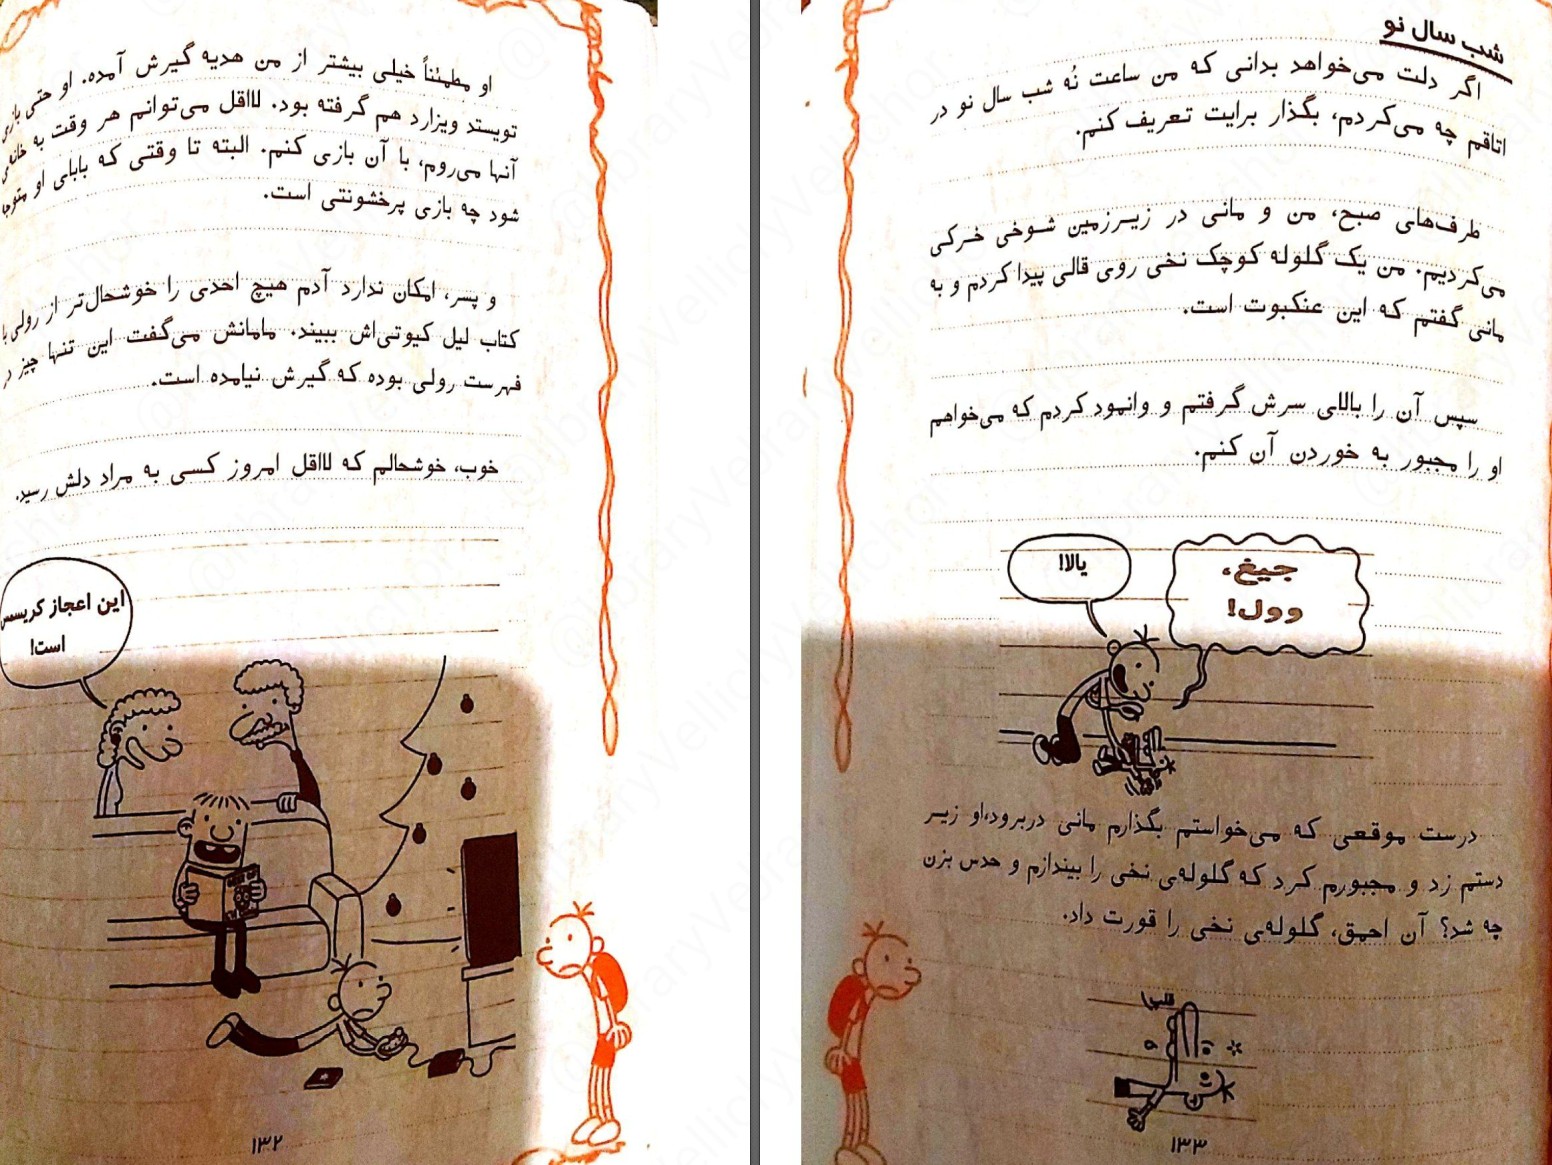 او مطمئناً خیلی بیشتر از من هدیه گیرش آمده. او حتی بازی
تویستد ویزارد هم گرفته بود. لااقل می‌توانم هر وقت به خانه‌ی
آنها می‌روم، با آن بازی کنم. البته تا وقتی که بابای او متوجه
شود چه بازی پرخشونتی است.
و پسر، امکان ندارد آدم هیچ احدی را خوشحال‌تر از رولی با
کتاب لیل کیوتی‌اش ببیند. مامانش می‌گفت این تنها چیز در
فهرست رولی بوده که گیرش نیامده است.
خوب، خوشحالم که لااقل امروز کسی به مراد دلش رسید.
این اعجاز کریسمس
است!
۱۳۲
شب سال نو
اگر دلت می‌خواهد بدانی که من ساعت نُه شب سال نو در
اتاقم چه می‌کردم، بگذار برایت تعریف کنم.
طرف‌های صبح، من و مانی در زیرزمین شوخی خرکی
می‌کردیم. من یک گلوله کوچک نخی روی قالی پیدا کردم و به
مانی گفتم که این عنکبوت است.
سپس آن را بالای سرش گرفتم و وانمود کردم که می‌خواهم
او را مجبور به خوردن آن کنم.
یالا!
جیغ،
وول!
درست موقعی که می‌خواستم بگذارم مانی دربرود،او زیر
دستم زد و مجبورم کرد که گلوله‌ی نخی را بیندازم و حدس بزن
چه شد؟ آن احمق، گلوله‌ی نخی را قورت داد.
قلپ!
۱۳۳